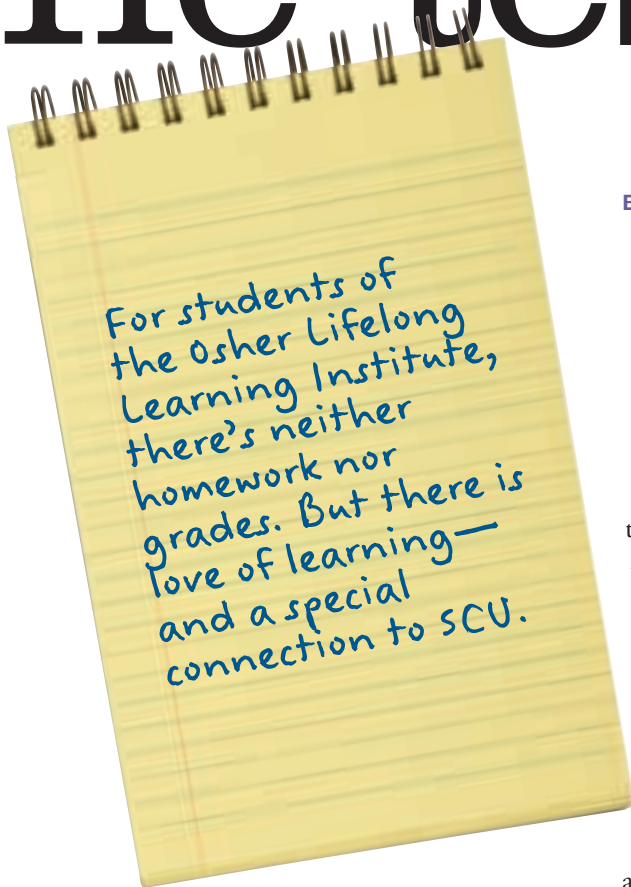 For students of
the Osher Lifelong
Learning Institute,
there's neither
homework nor
grades. But there is
love of learning—
and a special
connection to SCU.